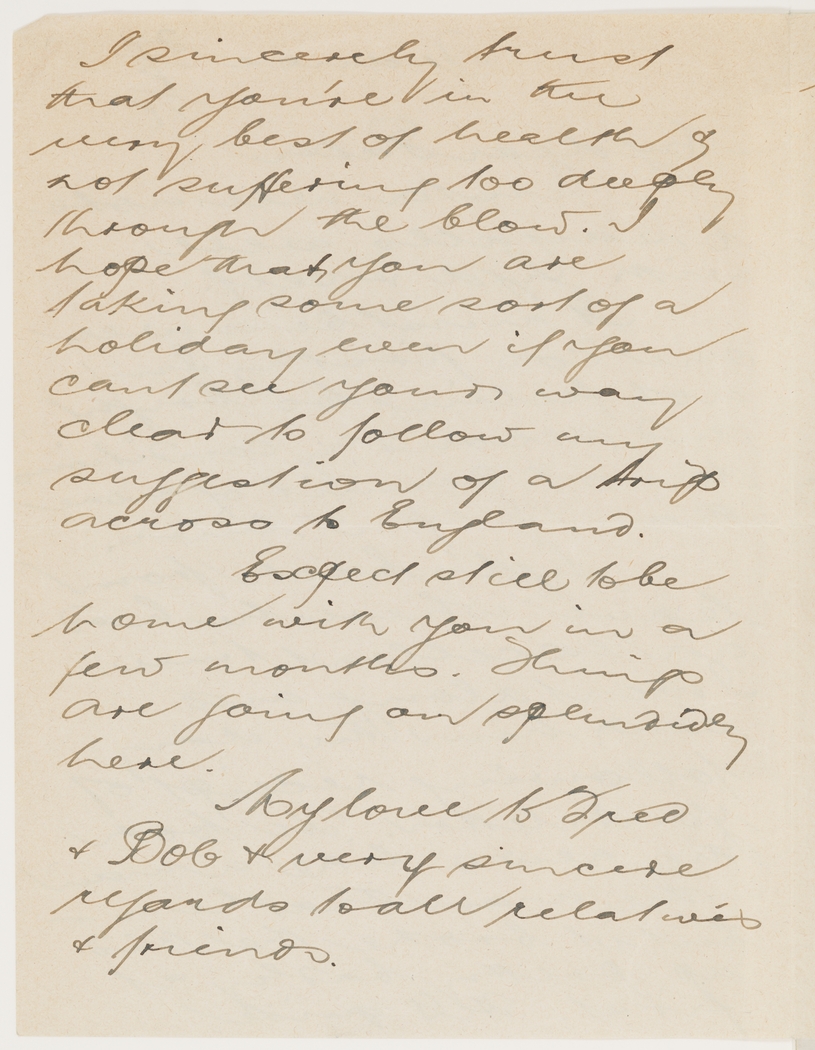 I sincerely trust
that you're in the
very best of health &
not suffering too deeply
through the blow. I
hope that you are
taking some sort of a
holiday even if you
cant see your way
clear to follow my
suggestion of a trip
across to England.
Expect still to be
home with you in a
few months. Things
are going on splendidly
here.
My love to Fred
& Bob & very sincere
regards to all relatives
& friends.